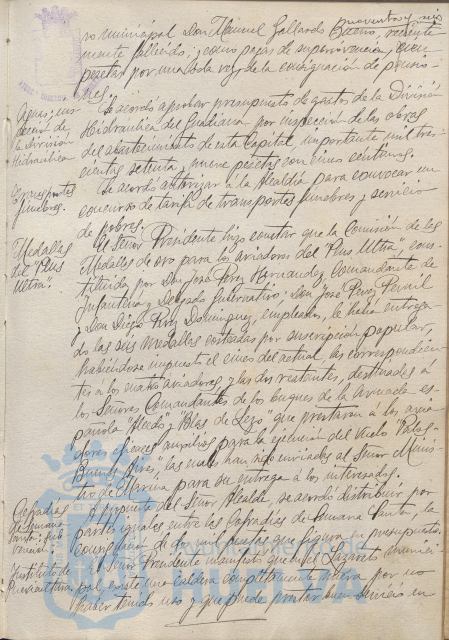 noventa y seis
ro municipal Don Manuel Gallardo, reciente
mente fallecido, como pagas de supervivencia, cien
pesetas por una sola vez, de la consignación de pensio-
nes."
Aguas: ins-
pección de
la División
Hidráulica
Se acordó aprobar presupuesto de gastos de la División
Hidráulica del Guadiana por inspección de las obras
del abastecimiento de esta Capital, importante mil tres-
cientas setenta y nueve pesetas con cinco céntimos.
Transportes
fúnebres.
Se acordó autorizar a la Alcaldía para convocar un
concurso de tarifa de transportes fúnebres y servicio
de pobres.
Medallas
del "Plus
Ultra".
El Señor Presidente hizo constar que la Comisión de las
Medallas de oro para los aviadores del "Plus Ultra", cons-
tituida por Don José Pérez Hernandez, Comandante de
Infantería y Delegado Gubernativo; Don José Pérez
y Don Diego Pérez Dominguez, empleados, le había entrega-
do las seis medallas costeadas por suscripción popular,
habiéndose impuesto el cinco del actual, las correspondien-
tes a los cuatro aviadores, y las dos restantes, destinadas á
los Señores Comandantes de los buques de la Armada es-
pañola "Alsedo" y "Blas de Lezo" que prestaran a los avia-
dores eficaces auxilios para la ejecución del vuelo "Palos-
Buenos Aires, las cuales han sido enviadas al Señor Minis-
tro de Marina para su entrega a los interesados.
Cofradías
de Semana
Santa: sub-
vención.
A propuesta del Señor Alcalde, se acordó distribuir por
partes iguales entre las Cofradías de Semana Santa, la
consignación de dos mil pesetas que figura en presupuesto.
Instituto de
Puericultura.
El Señor Presidente manifestó que en el Lazareto munici
pal, existe una caldera completamente nueva por no
haber tenido uso y que puede prestar buen servicio en
Ayuntamiento de